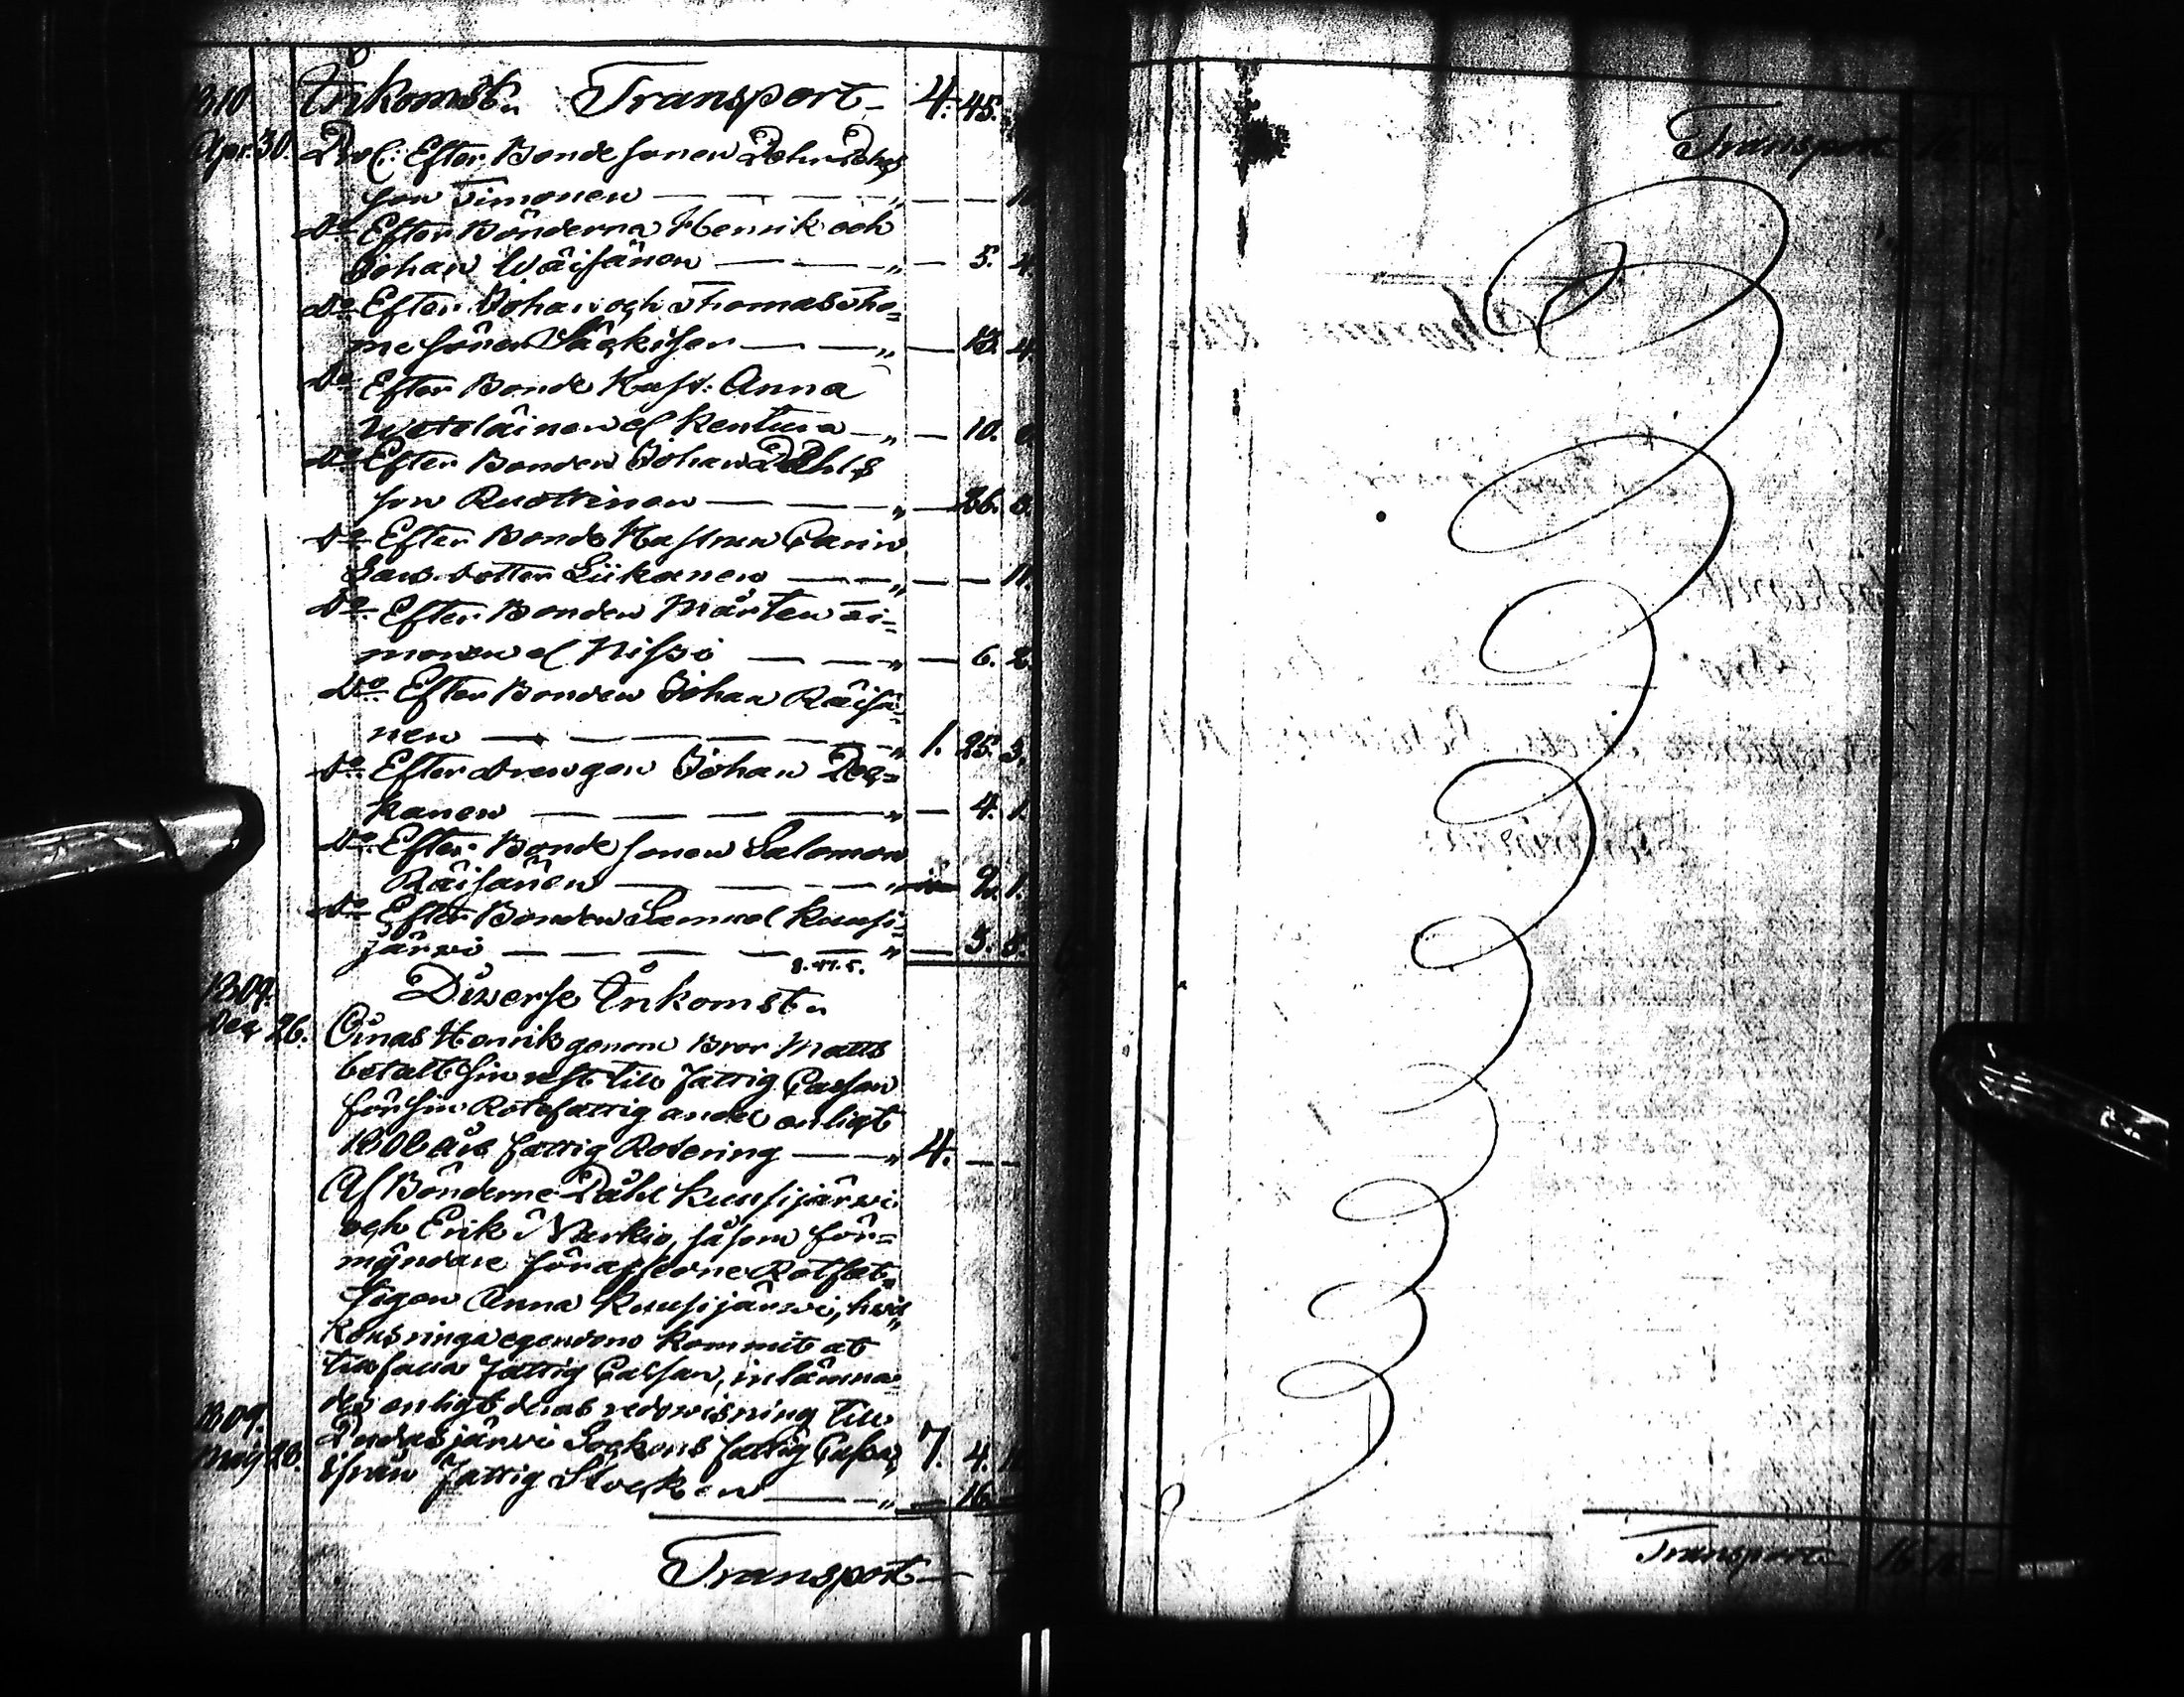 1810 Inkomst. Transport 4. 45.
Apr. 30. Proc: Efter Bonde sonen Pehr Pehrs
son Timonen — — — — „ — —
Do Efter Bönderna Henrik och
Johan Wäisänen — — — „ — 5. 4
Do Efter Johan och Thomas Tho=
me söner Säkisen — — „ — 13. 4
Do Efter Bonde Hust: Anna
Weteläinen el Kentura — „ — 10.
Do Efter Bonden Johan Påhls
son Ruottinen — — — „ — 26.
Do Efter Bonde Hustrun Carin
Lars dotter Liikanen — — „ — — 11.
Do Efter Bonden Mårten Ti=
monen el Nissi — — „ — 6. 2
Do Efter Bonden Johan Räisä=
nen — — — — — „ 1. 25. 3.
Do Efter drengen Johan Pes=
kanen — — — — — „ — 4. 1.
Do Efter Bonde sonen Salomon
Räisänen — — — — „ — 2. 1.
Do Efter Bonden Samuel Kuusi=
järwi — — — — — „ — 3. 8.
8. 47. 5.
1809. Diverse Inkomst.
Dec 26. Oinas Henrik genom Bror Matts
betalt sin rest till Fattig Cassan
för sin Rotefattig andel enligt
1808 års fattig Rotering — „ 4. — —
Af Bönderne Påhl Kuusijärwi
och Erik Narkio, såsom för=
myndare för Rotfat=
tigen Anna Kuusijärwi, hwil„
egendom kommit at
tillfalla Fattig Cassan, inlämna=
des enligt deras redowisning till
1809. Pudasjärwi Sockens fattig Cassa, 7. 4.
Maij 28. Ifrån Fattig Stocken — — „ — 16. —
Transport —
Transport 16.
Transport 16. 16. —